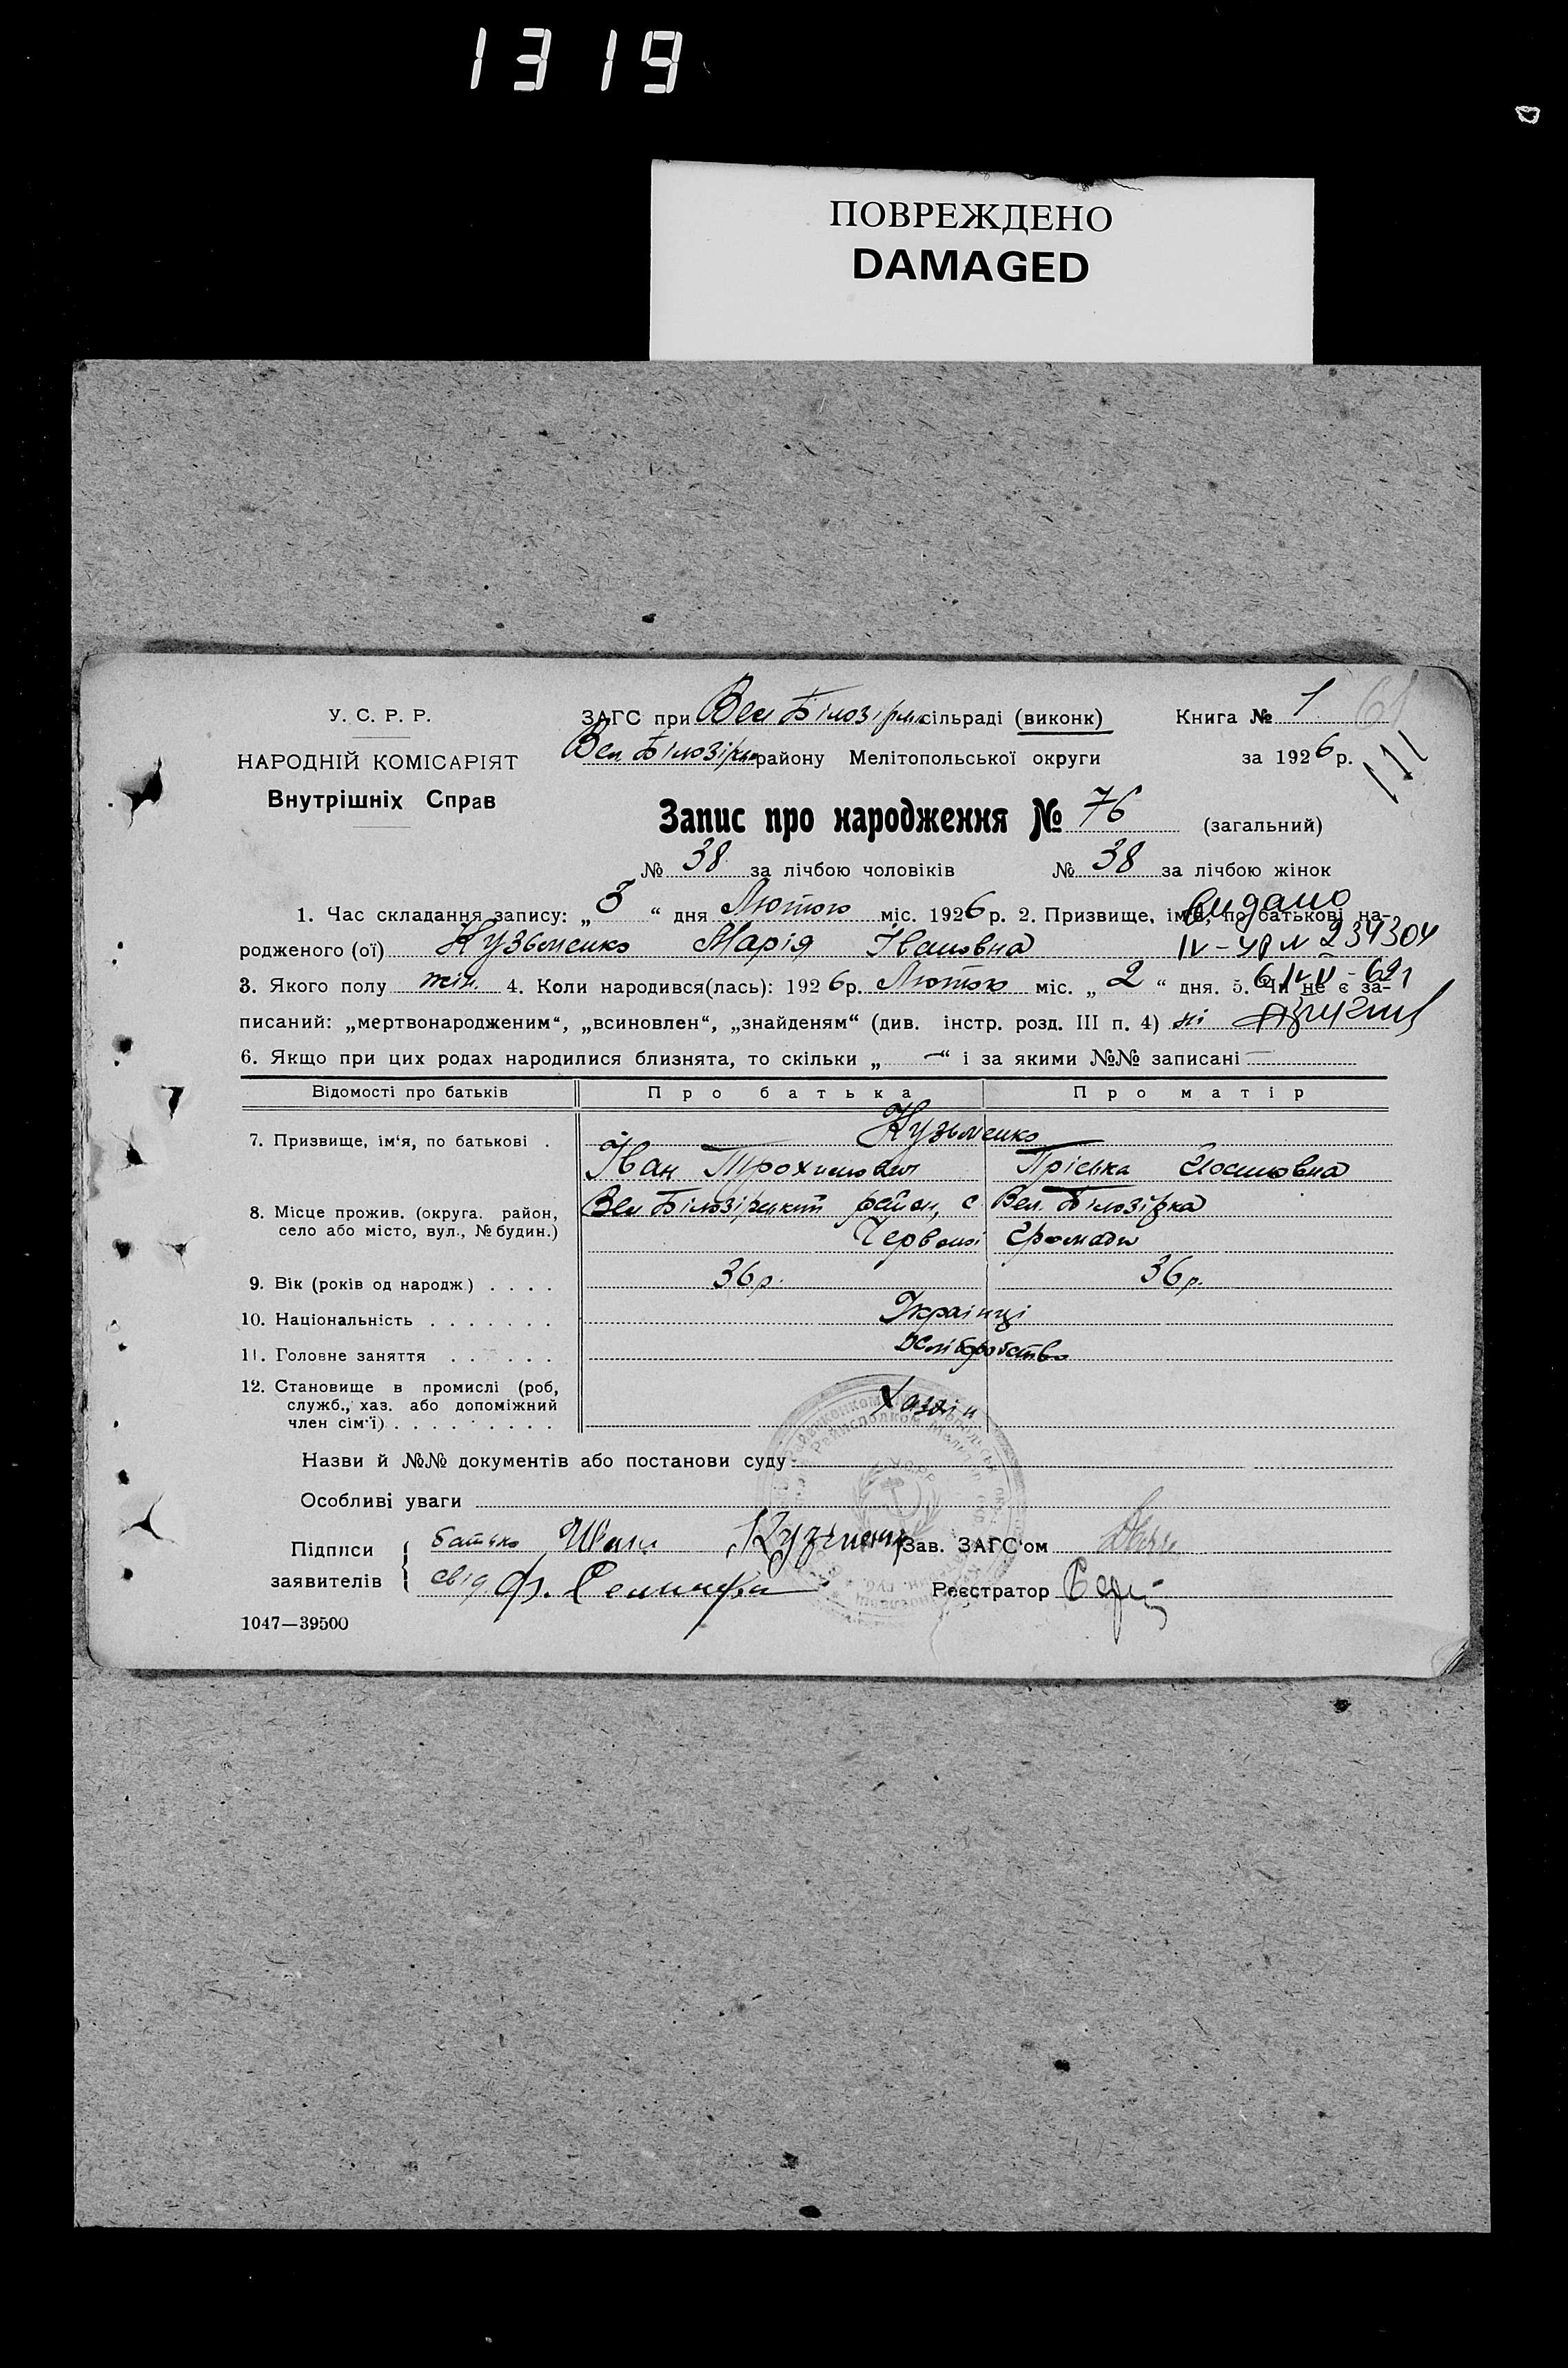 1319
ПОВРЕЖДЕНО
DAMAGED
У. С. Р. Р.
НАРОДНІЙ КОМІСАРІЯТ
Внутрішніх Справ
ЗАГС при Вел Білозірск сільраді (виконк)
Вел. Білозірск району Мелітопольської округи
Книга № 1 61
за 1926 р.
111
Запис про народження № 76 (загальний)
№ 38 за лічбою чоловіків № 38 за лічбою жінок
1. Час складання запису: „ 3 “ дня Лютого міс. 1926 р. 2. Призвище, ім'я, по батькові на-
видано
родженого (ої) Кузьменко Марія Івановна
IV-УР № 234304
3. Якого полу жін. 4. Коли народився(лась): 1926 р. Лютого міс. „ 2 “ дня. 5. Чи не є за-
писаний: „мертвонародженим“, „всиновлен“, „знайденям“ (див. інстр. розд. III п. 4) ні
6. Якщо при цих родах народилися близнята, то скільки „ — “ і за якими №№ записані —
Відомості про батьків Про батька Про матір
7. Призвище, ім'я, по батькові . Кузьменко
Іван Трохимович Пріська Йосиповна
8. Місце прожив. (округа. район,
село або місто, вул., № будин.)
Вел Білозірський район, с Вел. Білозірка
Червоної Громади
9. Вік (років од народж) . . . . 36 р. 36 р.
10. Національність . . . . . . . Українці
11. Головне заняття . . . . . . хліборобство
12. Становище в промислі (роб,
служб., хаз. або допоміжний
член сім'ї) . . . . . . . . .
Хазяїн
Назви й №№ документів або постанови суду
Особливі уваги
Підписи
заявителів
батько Иван Кузменко
свід Ф.
Зав. ЗАГС'ом
Реєстратор
1047—39500